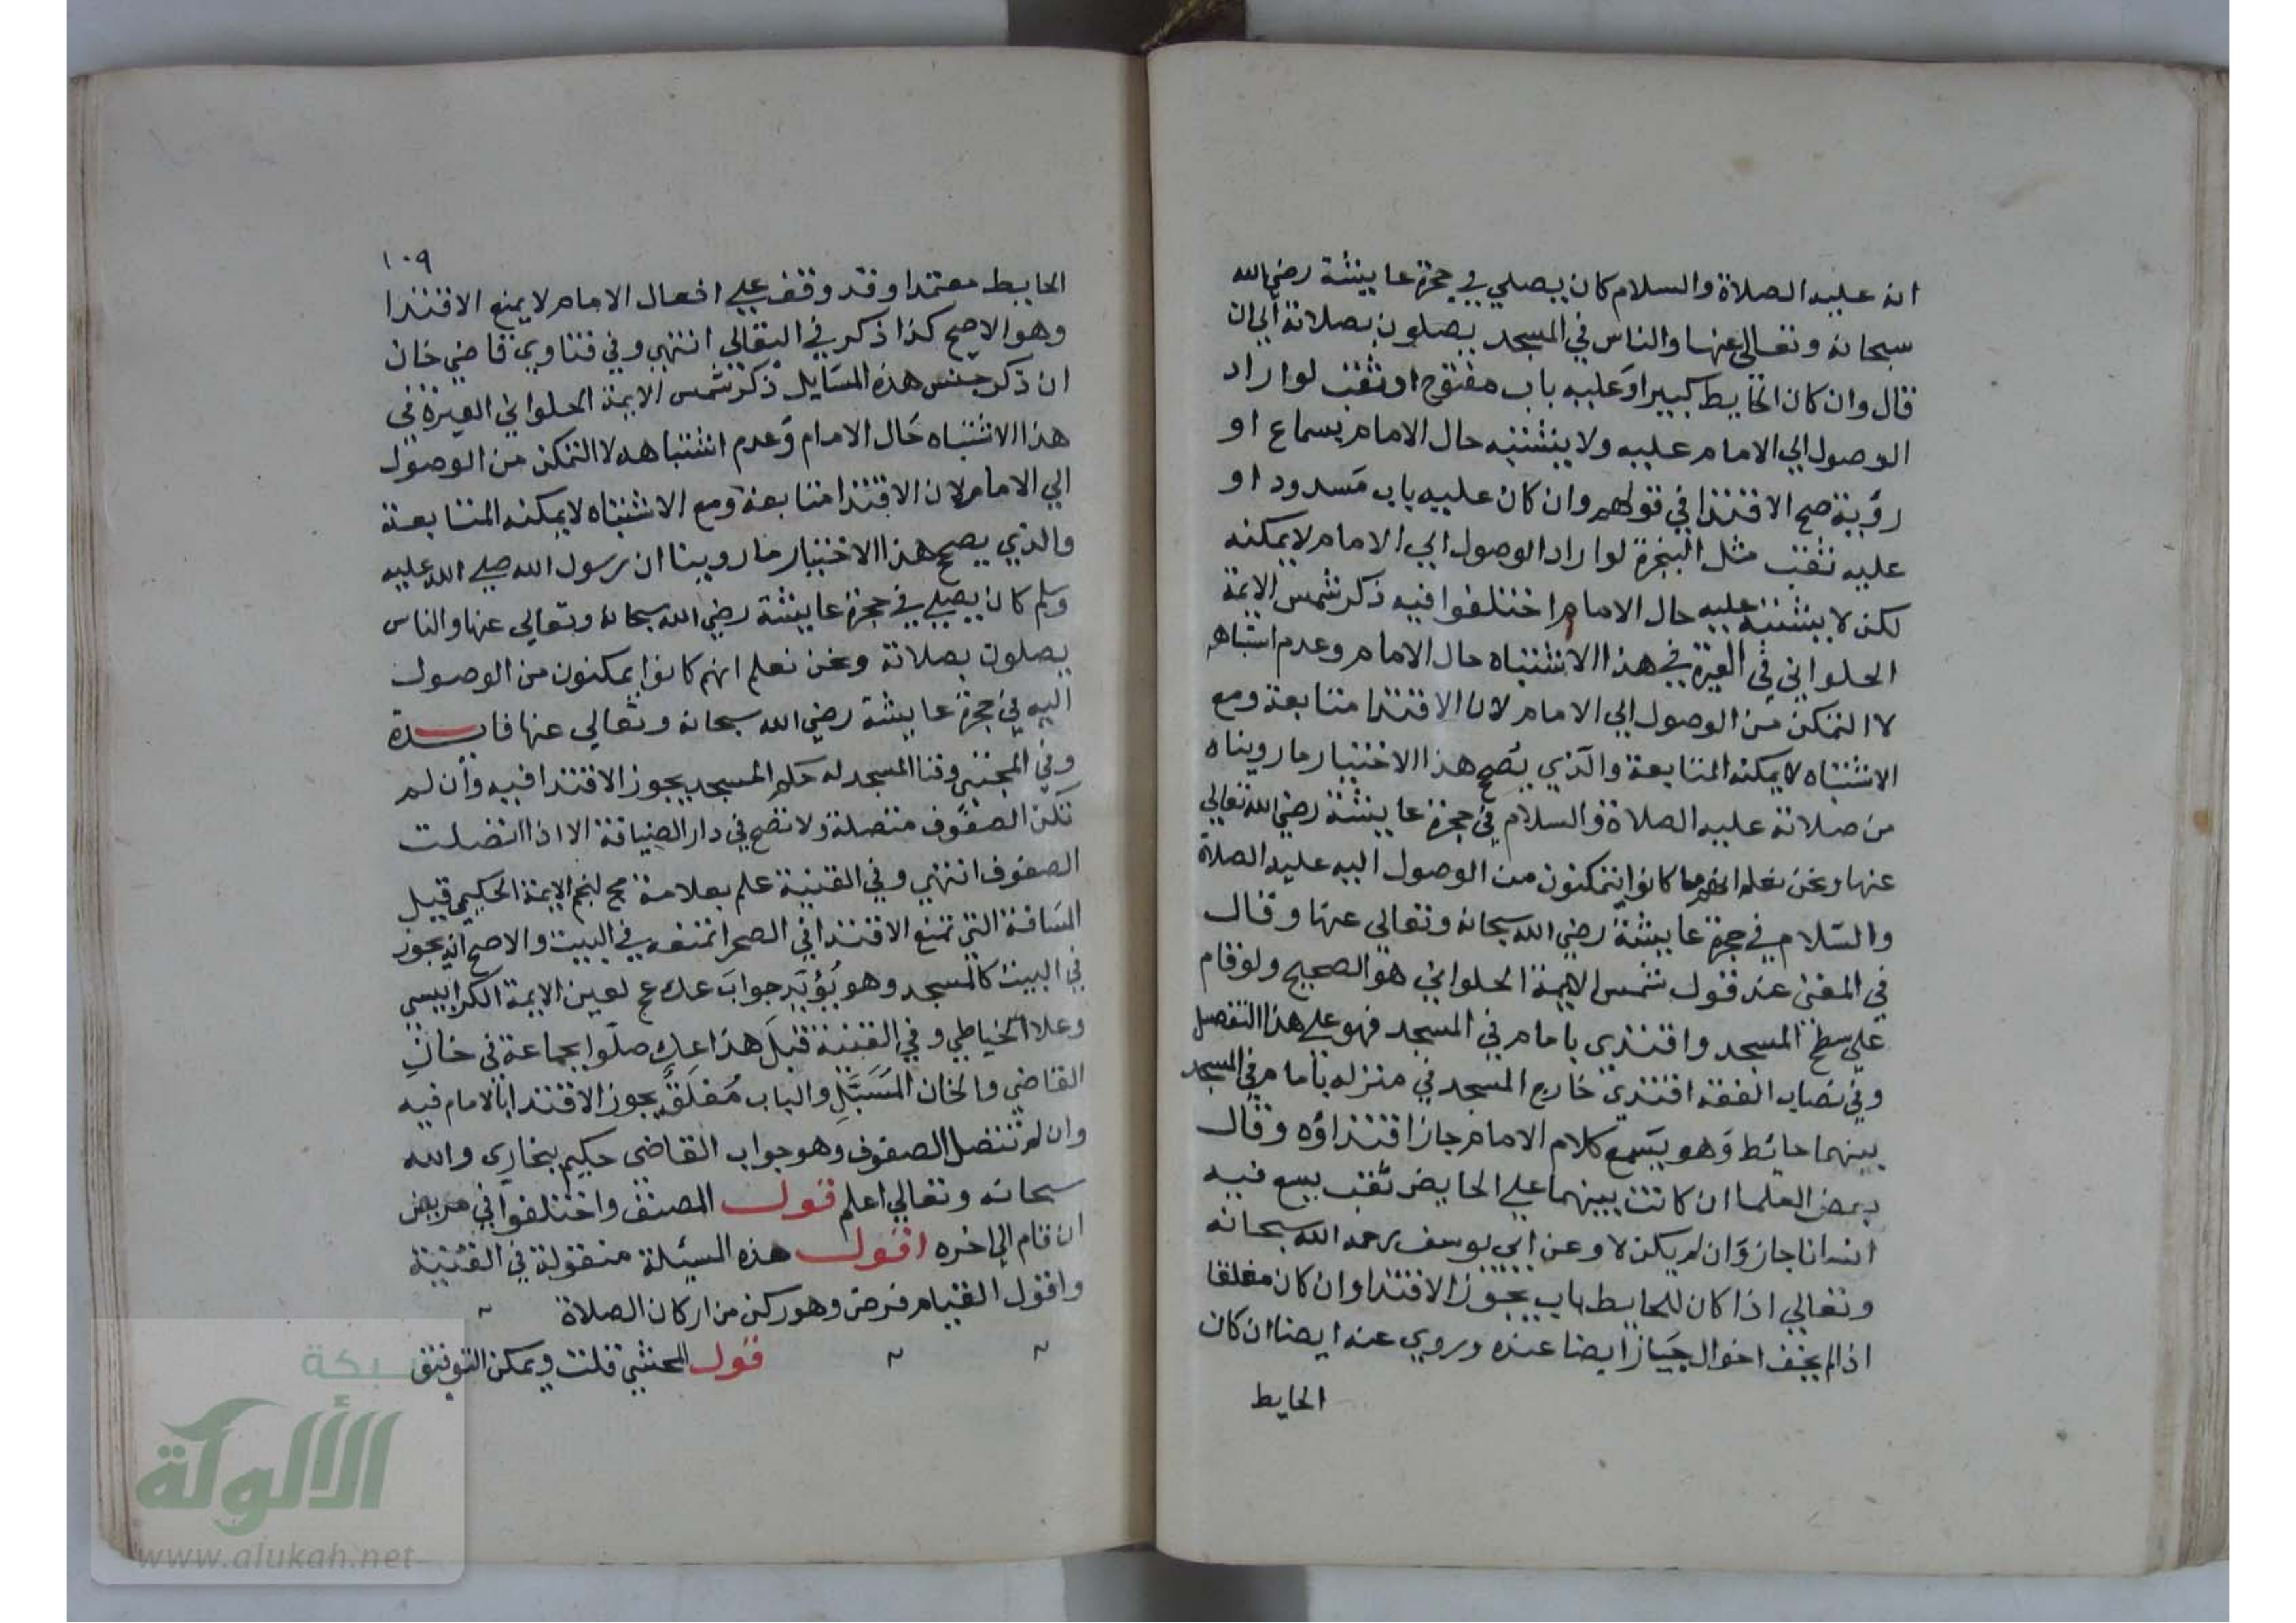 انه عليه الصلاة والسلام كان يصلي في حجرة عايشة رضي الله
سبحانه وتعالى عنها والناس في المسجد يصلون بصلاته الى ان
قال وان كان الحايط كبيرا وعليه باب مفتوح او ثقب لو اراد
الوصول الي الامام عليه ولا يشتبه حال الامام بسماع او
رؤية صح الاقتدا في قولهم وان كان عليه باب مسدود او
عليه ثقب مثل البنجرة لو اراد الوصول الي الامام لا يمكنه
لكن لا يشتبه عليه حال الامام اختلفوا فيه ذكر شمس الايمة
الحلواني في العبرة في هذا الاشتباه حال الامام وعدم اشتباهه
لا التمكن من الوصول الي الامام لان الاقتدا متابعة ومع
الاشتباه لا يمكنه المتابعة والذي يصح هذا الاختيار ما رويناه
من صلاته عليه الصلاة والسلام في حجرة عايشة رضي الله تعالي
عنها ونحن نعلم انهم ما كانوا يتمكنون من الوصول اليه عليه الصلاة
والسلام في حجرة عايشة رضي الله سبحانه وتعالي عنها وقال
في المغنى عند قول شمس الايمة الحلواني هو الصحيح ولو قام
علي سطح المسجد واقتدي بامام في المسجد فهو علي هذا التفصيل
وفي نصاب الفقه اقتدي خارج المسجد في منزله بامام في المسجد
بينهما حائط وهو يسمع كلام الامام جاز اقتداؤه وقال
بعض العلما ان كانت بينهما علي الحايض ثقب يسع فيه
انسانا جاز وان لم يكن لا وعن ابي يوسف رحمه الله سبحانه
وتعالي اذا كان للحايط باب يجوز الاقتدا وان كان مغلقا
اذا لم يخف احوال جاز ايضا عنده وروي عنه ايضا ان كان
الحايط
١٠٩
الحايط معتمدا وقد وقف علي افعال الامام لا يمنع الاقتدا
وهو الاصح كذا ذكر في البقالي انتهي وفي فتاوي قاضي خان
ان ذكر جنس هذه المسايل ذكر شمس الايمة الحلواني العبرة في
هذا الاشتباه حال الامام وعدم اشتباهه لا التمكن من الوصول
الي الامام لان الاقتدا متابعة ومع الاشتباه لا يمكنه المتابعة
والذي يصح هذا الاختيار ما روينا ان رسول الله صلي الله عليه
وسلم كان يصلي في حجرة عايشة رضي الله سبحانه وتعالي عنها والناس
يصلون بصلاته ونحن نعلم انهم كانوا يمكنون من الوصول
اليه في حجرة عايشة رضي الله سبحانه وتعالي عنها فايدة
وفي المجتبي وفنا المسجد له حكم المسجد يجوز الاقتدا فيه وان لم
تكن الصفوف متصلة ولا تصح في دار الضيافة الا اذا اتصلت
الصفوف انتهي وفي القنية علم بعلامة مح لنجم الايمة الحكيمي قيل
المسافة التي تمنع الاقتدا في الصحرا تمنعه في البيت والاصح انه يجوز
في البيت كالمسجد وهو يؤيد جواب عك ع لعين الايمة الكرابيسي
وعلا الخياطي وفي القنية قبل هذا عك صلوا بجماعة في خان
القاضي والخان المسبل والباب مغلق يجوز الاقتدا بالامام فيه
وان لم تتصل الصفوف وهو جواب القاضي حكيم بخاري والله
سبحانه وتعالي اعلم قول المصنف واختلفوا في مريض
ان قام الي اخره اقول هذه المسئلة منقولة في القنية
واقول القيام فرض وهو ركن من اركان الصلاة
قول المحشي قلت ويمكن التوفيق
شبكة
الألوكة
www.alukah.net